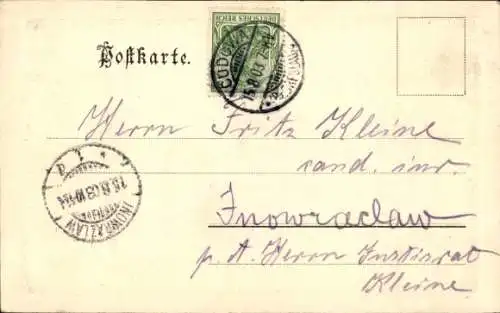 DEUTSCHES REICH
Postkarte.
CUDOWA
15.8.03. 7-8N
Herrn Fritz Kleine
cand. iur.
Inowraclaw
p. A. Herrn Justizrat
Kleine
INOWRAZLAW
15.8.03